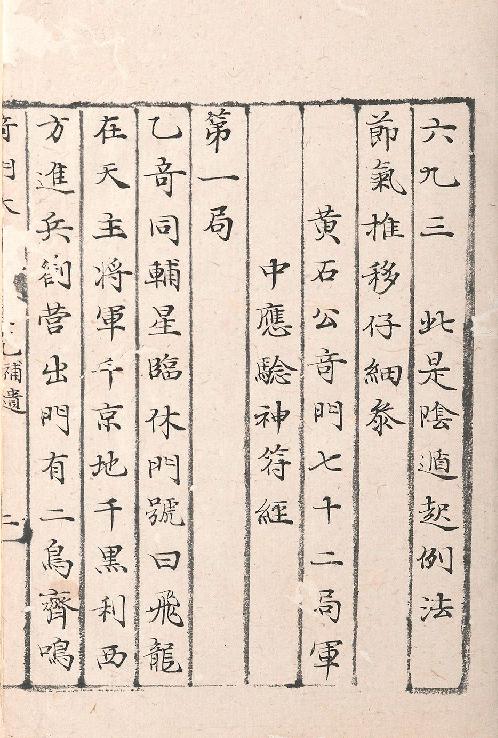 六九三　此是陰遁起例法
節氣推移仔細叅
黃石公竒門七十二局軍
中應驗神符經
第一局
乙竒同輔星臨休門號曰飛龍
在天主將軍千京地千黑利西
方進兵劄營出門有二鳥齊鳴